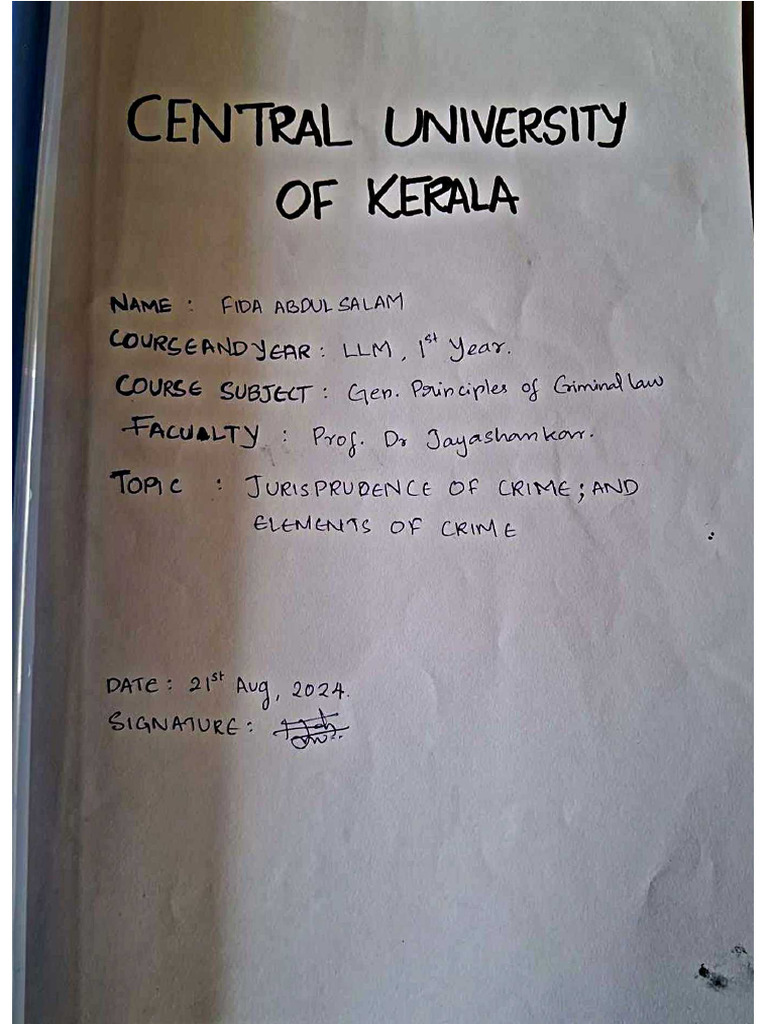 CENTRAL UNIVERSITY
OF KERALA
NAME : FIDA ABDUL SALAM
COURSE AND YEAR : LLM, 1st Year.
COURSE SUBJECT : Gen. Principles of Criminal law
FACUALTY : Prof. Dr Jayashankar.
TOPIC : JURISPRUDENCE OF CRIME; AND
ELEMENTS OF CRIME
DATE : 21st Aug, 2024.
SIGNATURE :